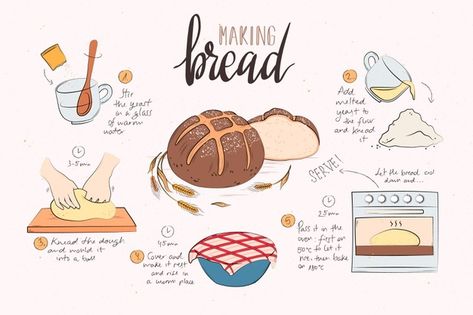 MAKING
bread
1
Stir
the yeast
in a glass
of warm
water
2
Add
melted
yeast to
the flour
and knead
it
3-5 min
3 Knead the dough
and mould it
into a ball
4
45 min
Cover and
make it rest
and rise in
a warm place
5
25 min
Pass it in
the oven: first on
50°C to let it
rise, then bake
on 180°C
SERVE!
Let the bread cool
down and...